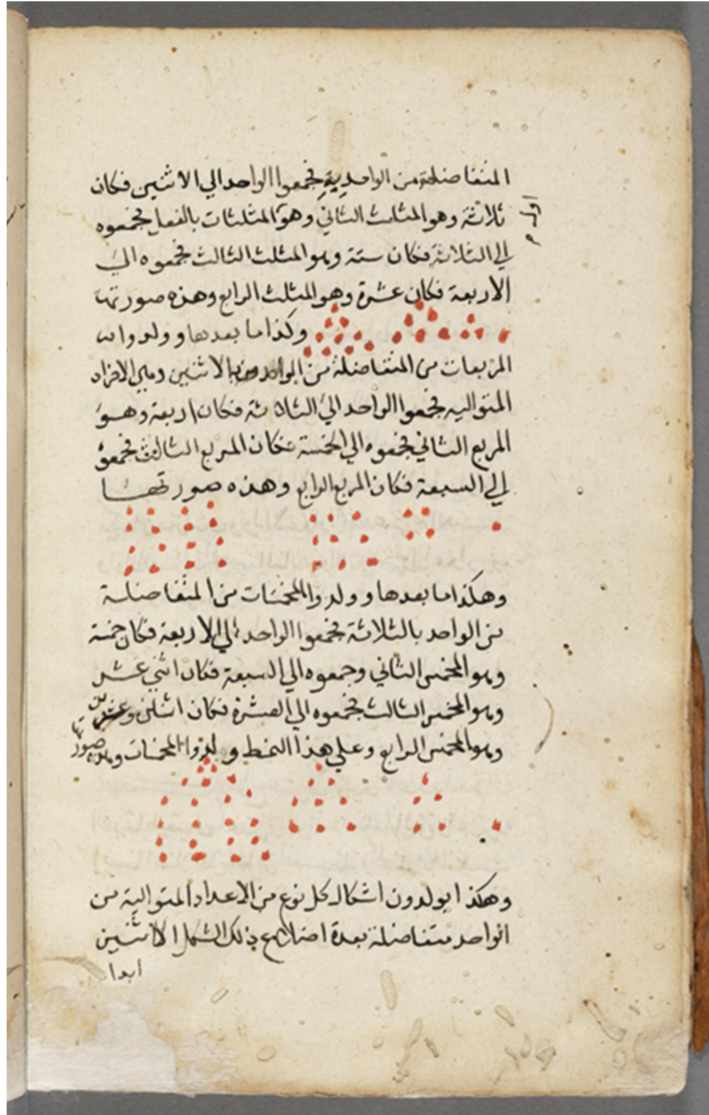 المتفاضلة من الواحدية فجمعوا الواحد الي الاثنين فكان
ثلاثة وهو المثلث الثاني وهو المثلثات بالفعل فجمعوه
الي الثلاثة فكان ستة وهو المثلث الثالث فجمعوه الي
الاربعة فكان عشرة وهو المثلث الرابع وهذه صورتها
وكذا ما بعدها وولدوا
المربعات من المتفاضلة من الواحد بالاثنين وهي الافراد
المتواليه فجمعوا الواحد الي الثلاثة فكان اربعة وهو
المربع الثاني فجمعوه الي الخمسة فكان المربع الثالث فجمعوه
الي السبعة فكان المربع الرابع وهذه صورتها
وهكذا ما بعدها وولدوا المخمسات من المتفاضلة
من الواحد بالثلاثة فجمعوا الواحد الي الاربعة فكان خمسة
وهو المخمس الثاني وجمعوه الي السبعة فكان اثني عشر
وهو المخمس الثالث فجمعوه الي العشرة فكان اثنين وعشرين
وهو المخمس الرابع وعلي هذا النمط ولدوا المخمسات وهذه صور
وهكذا يولدون اشكال كل نوع من الاعداد المتوالية من
الواحد متفاضلة بعدة اضلاع ذلك الشكل الا اثنين
ابدا